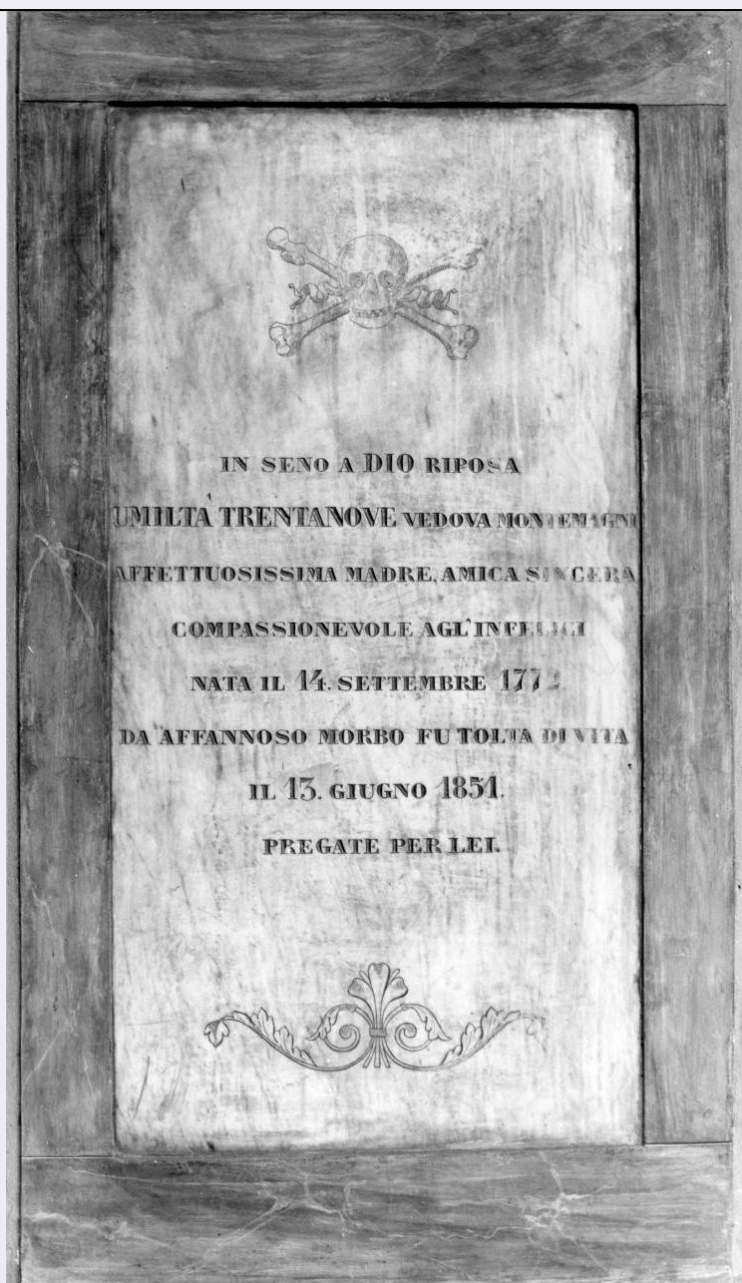 IN SENO A DIO RIPOSA
UMILTÀ TRENTANOVE VEDOVA MONTEMAGNI
AFFETTUOSISSIMA MADRE, AMICA SINCERA
COMPASSIONEVOLE AGL'INFELICI
NATA IL 14. SETTEMBRE 1772
DA AFFANNOSO MORBO FU TOLTA DI VITA
IL 13. GIUGNO 1851.
PREGATE PER LEI.